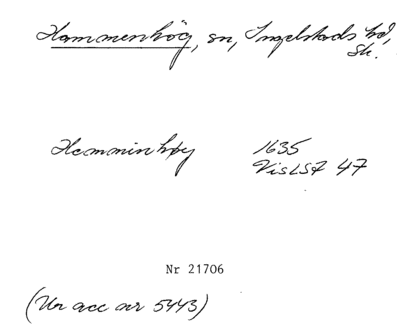 Hammenhög, sn, Ingelstads hd,
Sk.
Hemminhøy 1635
VisLSF 47
Nr 21706
(Ur acc nr 5443)